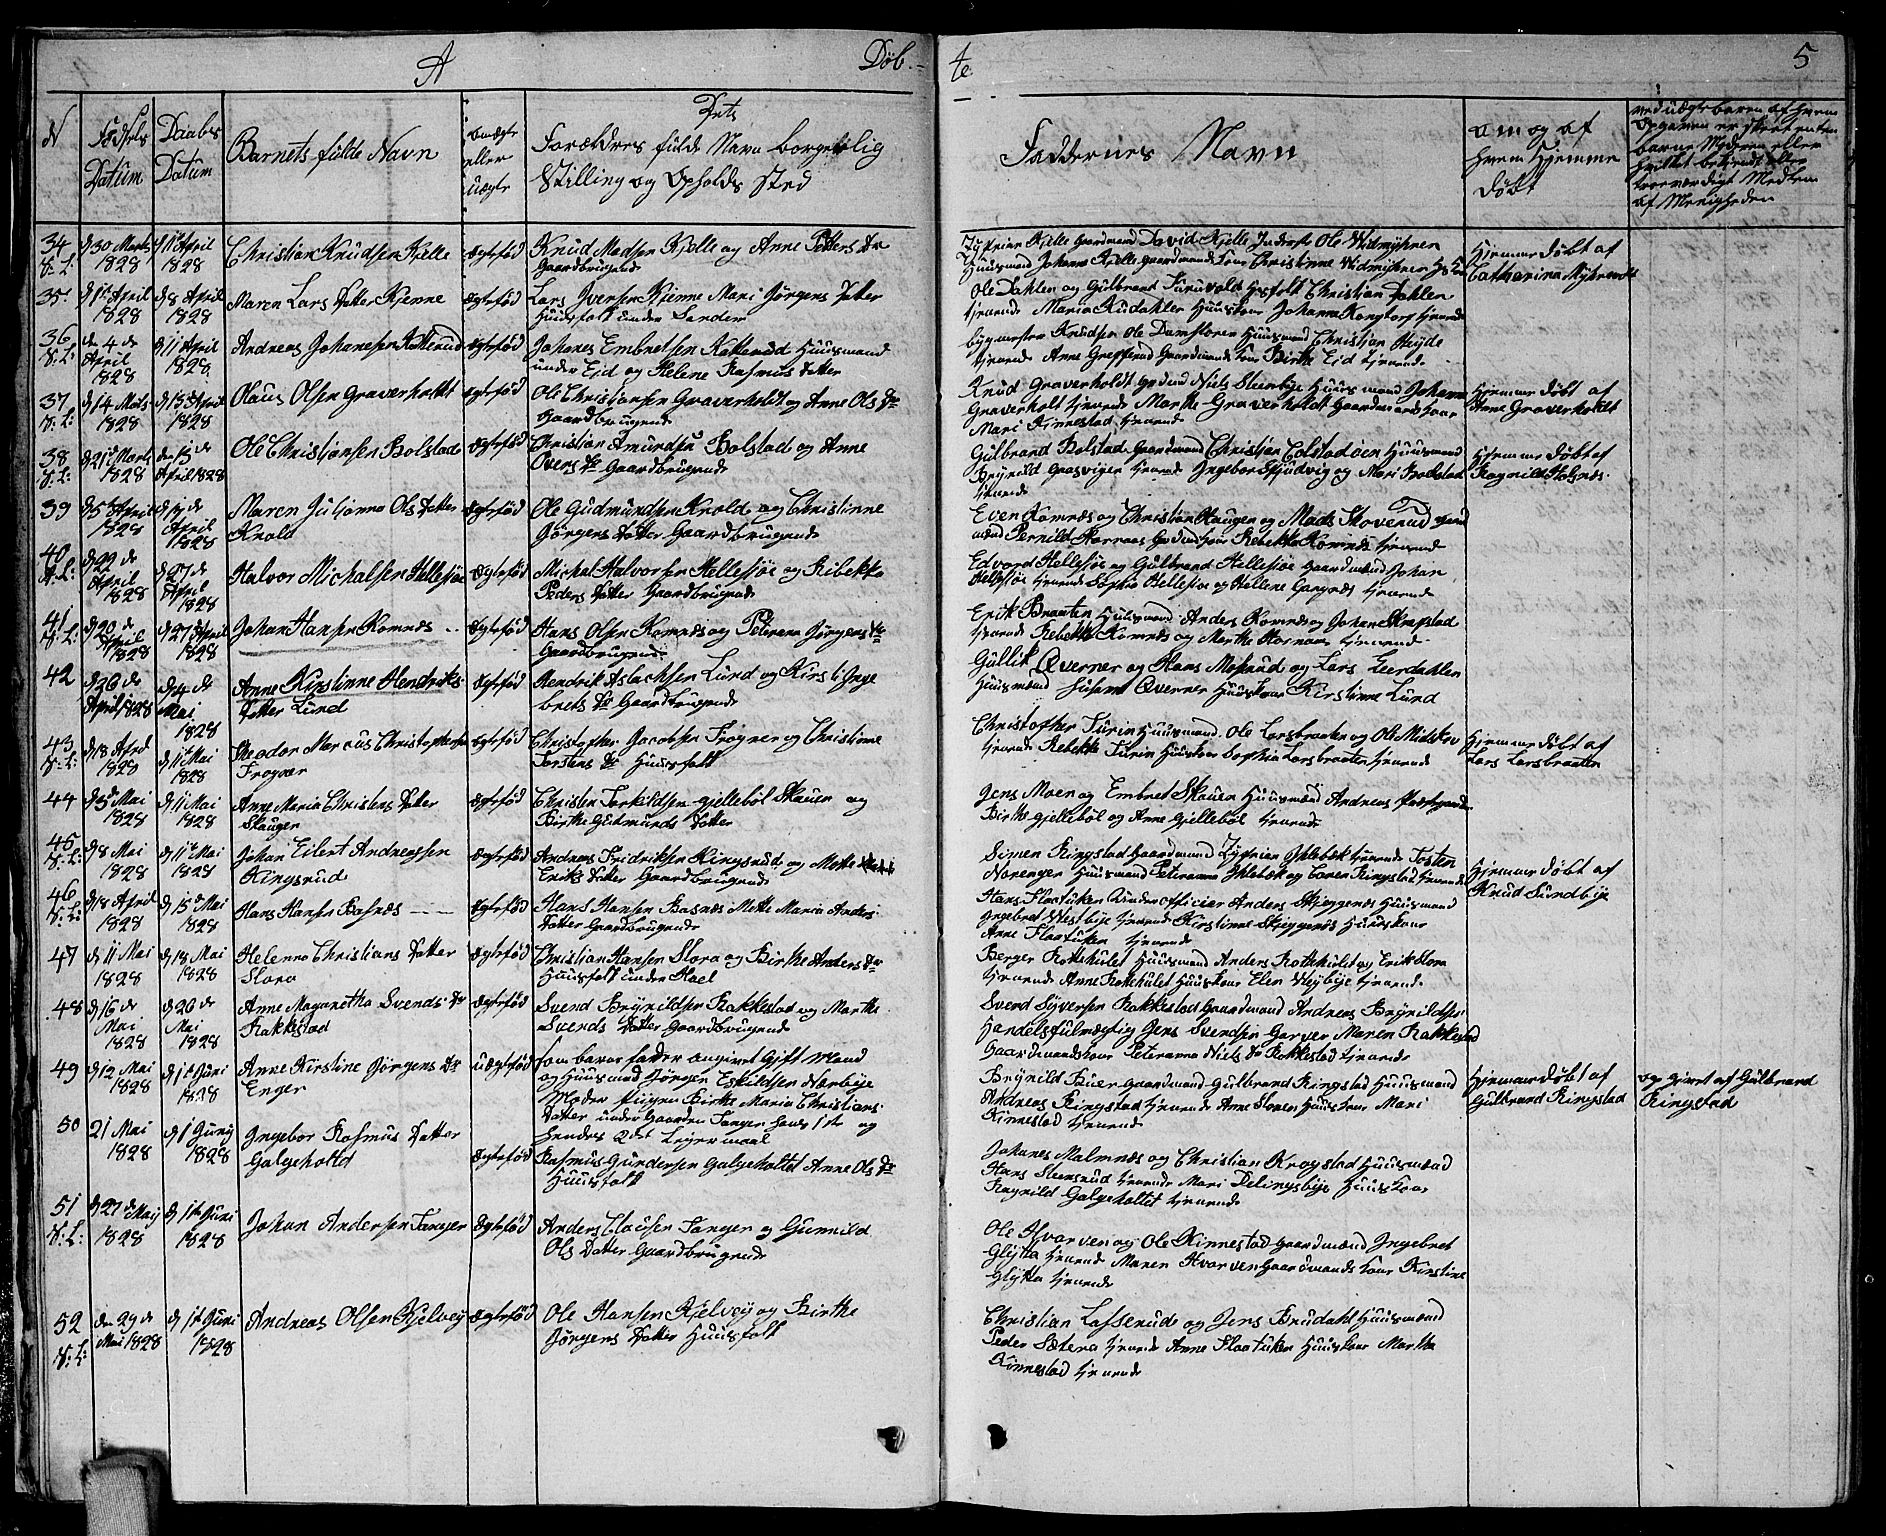 A Døb-
te 5
N
Fødsels Datum
Daabs Datum
Barnets fulde Navn
om ægte eller uægte
Dets Forældres fulde Navn borgerlig Stilling og Opholds Sted
Faddernes Navn
om og af hvem Hjemme Døbt
34 V:L:
d 30 Marts 1828
d 11 April 1828
Christian Knudsen Kjelle
ægtefød
Knud Madsen Kjelle og Anne Petters Dr
Gaardbrugende
Kjelle Gaardmand David Kjelle Inderst Ole Widmÿhren
Huusmand Johanna Kjelle Gaardmands Kone Christinne Widmÿhren
Hjemmedøbt af
Catharina Mÿhrend
35
d 1te April 1828
d 8 April 1828
Maren Lars Datter Kjenne
ægtefød
Lars Iversen Kjenne Mari Jørgens Datter
Huusfolk under Sander
Ole Dahlen og Gulbrand Furuvald Huusfolk Christian Dahlen
tjenende Maria Rudahler Huuskone Johanna Kongtorp tjenende
36 V:L:
den 4 de April 1828
d 11 April 1828
Andreas Johanesen Katterud
ægtefød
Johanes Embretsen Katterud Huusmand
under Eid og Helene Rasmus Datter
Bygmester Knudsen Ole Damstoren Huusmand Christian Heyde
tjenende Anne Grefferud Gaardmands Kone Birthe Eid tjenende
37 V:L:
d 14 Marts 1828
d 13 April 1828
Olaus Olsen Graverholdt
ægtefød
Ole Christiansen Graverholdt og Anne Ols Dr
Gaardbrugende
Knud Graverholdt Niels Steenbye Huusmand Johanna
Graverholt tjenende Marthe Graverholdt Gaardmands Kone
Mari Kinnestad tjenende
Hjemmedøbt af
Anne Graverholdt
38 V:L:
d 21 Marts 1828
den 13 de April 1828
Ole Christiansen Bolstad
ægtefød
Christian Amundsen Bolstad og Anne
Overs Dr Gaardbrugende
Gulbrand Bolstad Gaardmand Christian Colstadøen Huusmand
Brÿnild Gaasviger tjenende Ingebor Skjudvig og Mari Bolstad
tjenende
Hjemmedøbt af
Ragnild Holsnæs
39
d 5 te April 1828
d 13 de April 1828
Maren Julianna Ols Datter
Knold
ægtefød
Ole Gudmundsen Knold og Christinne
Jørgens Datter Gaardbrugende
Even Komnæs og Christian Haugen og Mads Skoverud Gaard
mænd Pernild Hornæs Rebekka Komnæs tjenende
40 V:L:
d 22 de April 1828
d 27 de April 1828
Halvor Michalsen Hellesjøe
ægtefød
Michal Halvorsen Hellesjøe og Rebekke
Peders Datter Gaardbrugende
Edvard Hellesjøe og Gulbrand Hellesjøe Gaardmænd Johan
Hellesjøe tjenende Sophia Hellesjøe og Hellene Gangnæs tjenende
41 V:L:
d 20 de April 1828
d 27 April 1828
Johan Hansen Komnæs
ægtefød
Hans Olsen Komnæs og Peterena Jørgens Dr
Gaardbrugende
Erik Braaten Huusmand Anders Komnæs og Johan Skrepstad
tjenende Rebekke Komnæs og Marthe Hornæs tjenende
42
d 26 de April 1828
d 4 de Mai 1828
Anne Kirstinne Hendriks
Datter Lund
ægtefød
Hendrik Aslachsen Lund og Kirsti Inge
brets Dr Gaardbrugende
Gullik Øverner og Hans Mosrud og Lars Leerdahlen
Huusmænd Susana Øverner Huuskone Kirstinne Lund
43 V:L:
d 18 April 1828
d 11 te Mai 1828
Theodor Marcus Christophersen
Frogner
ægtefød
Christopher Jacobsen Frogner og Christinne
Torstens Dr Huusfolk
Christopher Turin Huusmand Ole Larsbraaten og Ole Midskov
tjenende Rebekke Turin Huuskone Sophia Larsbraaten tjenende
Hjemmedøbt af
Lars Larsbraaten
44
d 5 Mai 1828
d 11 Mai 1828
Anne Maria Christens Datter
Skauger
ægtefød
Christen Torkildsen Gjellebøl Skauen og
Birthe Gudmunds Datter
Jens Moen og Embret Skauen Huusmænd Andreas
Birthe Gjellebøl og Anne Gjellebøl tjenende
45 V:L:
d 8 Mai 1828
d 11 te Mai 1828
Johan Eilert Andreassen
Ringsrud
ægtefød
Andreas Fridriksen Ringsrud og Mette
Eriks Datter Gaardbrugende
Simen Ringstad Gaardmand Zyfrian Ihlebæk tjenende Tosten
Norenger Huusmand Peteranna Ihlebæk og Karen Ringstad tjenende
Hjemmedøbt af
Knud Sundbye
46 V:L:
d 18 April 1828
d 15 Mai 1828
Hans Hansen Basnæs
ægtefød
Hans Hansen Basnæs Mette Maria Anders
Datter Gaardbrugende
Hans Flaatuken Underofficier Anders Skjeggenæs Huusmand
Ingebret Westbye tjenende Kirstinne Skjeggenæs Huuskone
Anne Flaatuken tjenende
47
d 11 Mai 1828
d 18 Mai 1828
Helenne Christians Datter
Slora
ægtefød
Christian Hansen Slora og Birthe Anders Dr
Huusfolk under Hoel
Berger Rottehulet Huusmand Anders Rottehulet og Erik Slora
tjenende Anne Rottehulet Huuskone Elen Heÿbÿe tjenende
48
d 16 de Mai 1828
d 26 de Mai 1828
Anne Magaretha Svends Dr
Rakkestad
ægtefød
Svend Brÿnildsen Rakkestad og Marthe
Svends Datter Gaardbrugende
Svend Sÿversen Rakkestad Gaardmand Andreas Brÿnildsen
Handelsfulmægtig Jens Svendsen Garver Maren Rakkestad
Gaardmandskone Peteranna Niels Dr Rakkestad tjenende
49
d 12 Mai 1828
d 1 te Juni 1828
Anne Kirstine Jørgens Dr
Enger
uægtefød
som barnefader angivet Gift Mand
og Huusmand Jørgen Eskildsen Nærbÿe
Moder Pigen Birthe Maria Christians
Datter under Gaarden Tanger hans 1ste og
hendes 2det Leiermaal
Brÿnild Bauer Gaardmand Gulbrand Ringstad Huusmand
Andreas Ringstad tjenende Anne Huuskone Mari
Kinnestad tjenende
Hjemmedøbt af
Gulbrand Ringstad
opgivet af Gulbrand
Ringstad
50
21 Mai 1828
d 1 Junÿ 1828
Ingebor Rasmus Datter
Galgeholtd
ægtefød
Rasmus Gundersen Galgeholtet Anne Ols Dr
Huusfolk
Johanes Malmnæs og Christian Krogstad Huusmænd
Hans Steensrud tjenende Mari Delingsbye Huuskone
Ragnild Galgeholtet tjenende
51 V:L:
d 27 de Maÿ 1828
d 1 te Juni 1828
Johan Andersen Tanger
ægtefød
Anders Clausen Tanger og Gunnild
Ols Datter Gaardbrugende
Ole Hvarven og Ole Kinnestad Gaardmænd Ingebret
Glÿtta tjenende Maren Hvarven Gaardmands Kone Kirstine
Glÿtta tjenende
52 V:L:
den 29 de Mai 1828
d 1 te Juni 1828
Andreas Olsen Kjelveÿ
ægtefød
Ole Hansen Kjelveÿ og Birthe
Jørgens Datter Huusfolk
Christian Lasserud og Jens Brudahl Huusmænd
Peder Sætera tjenende Anne Flaatuken Huuskone Martha
Kinnestad tjenende